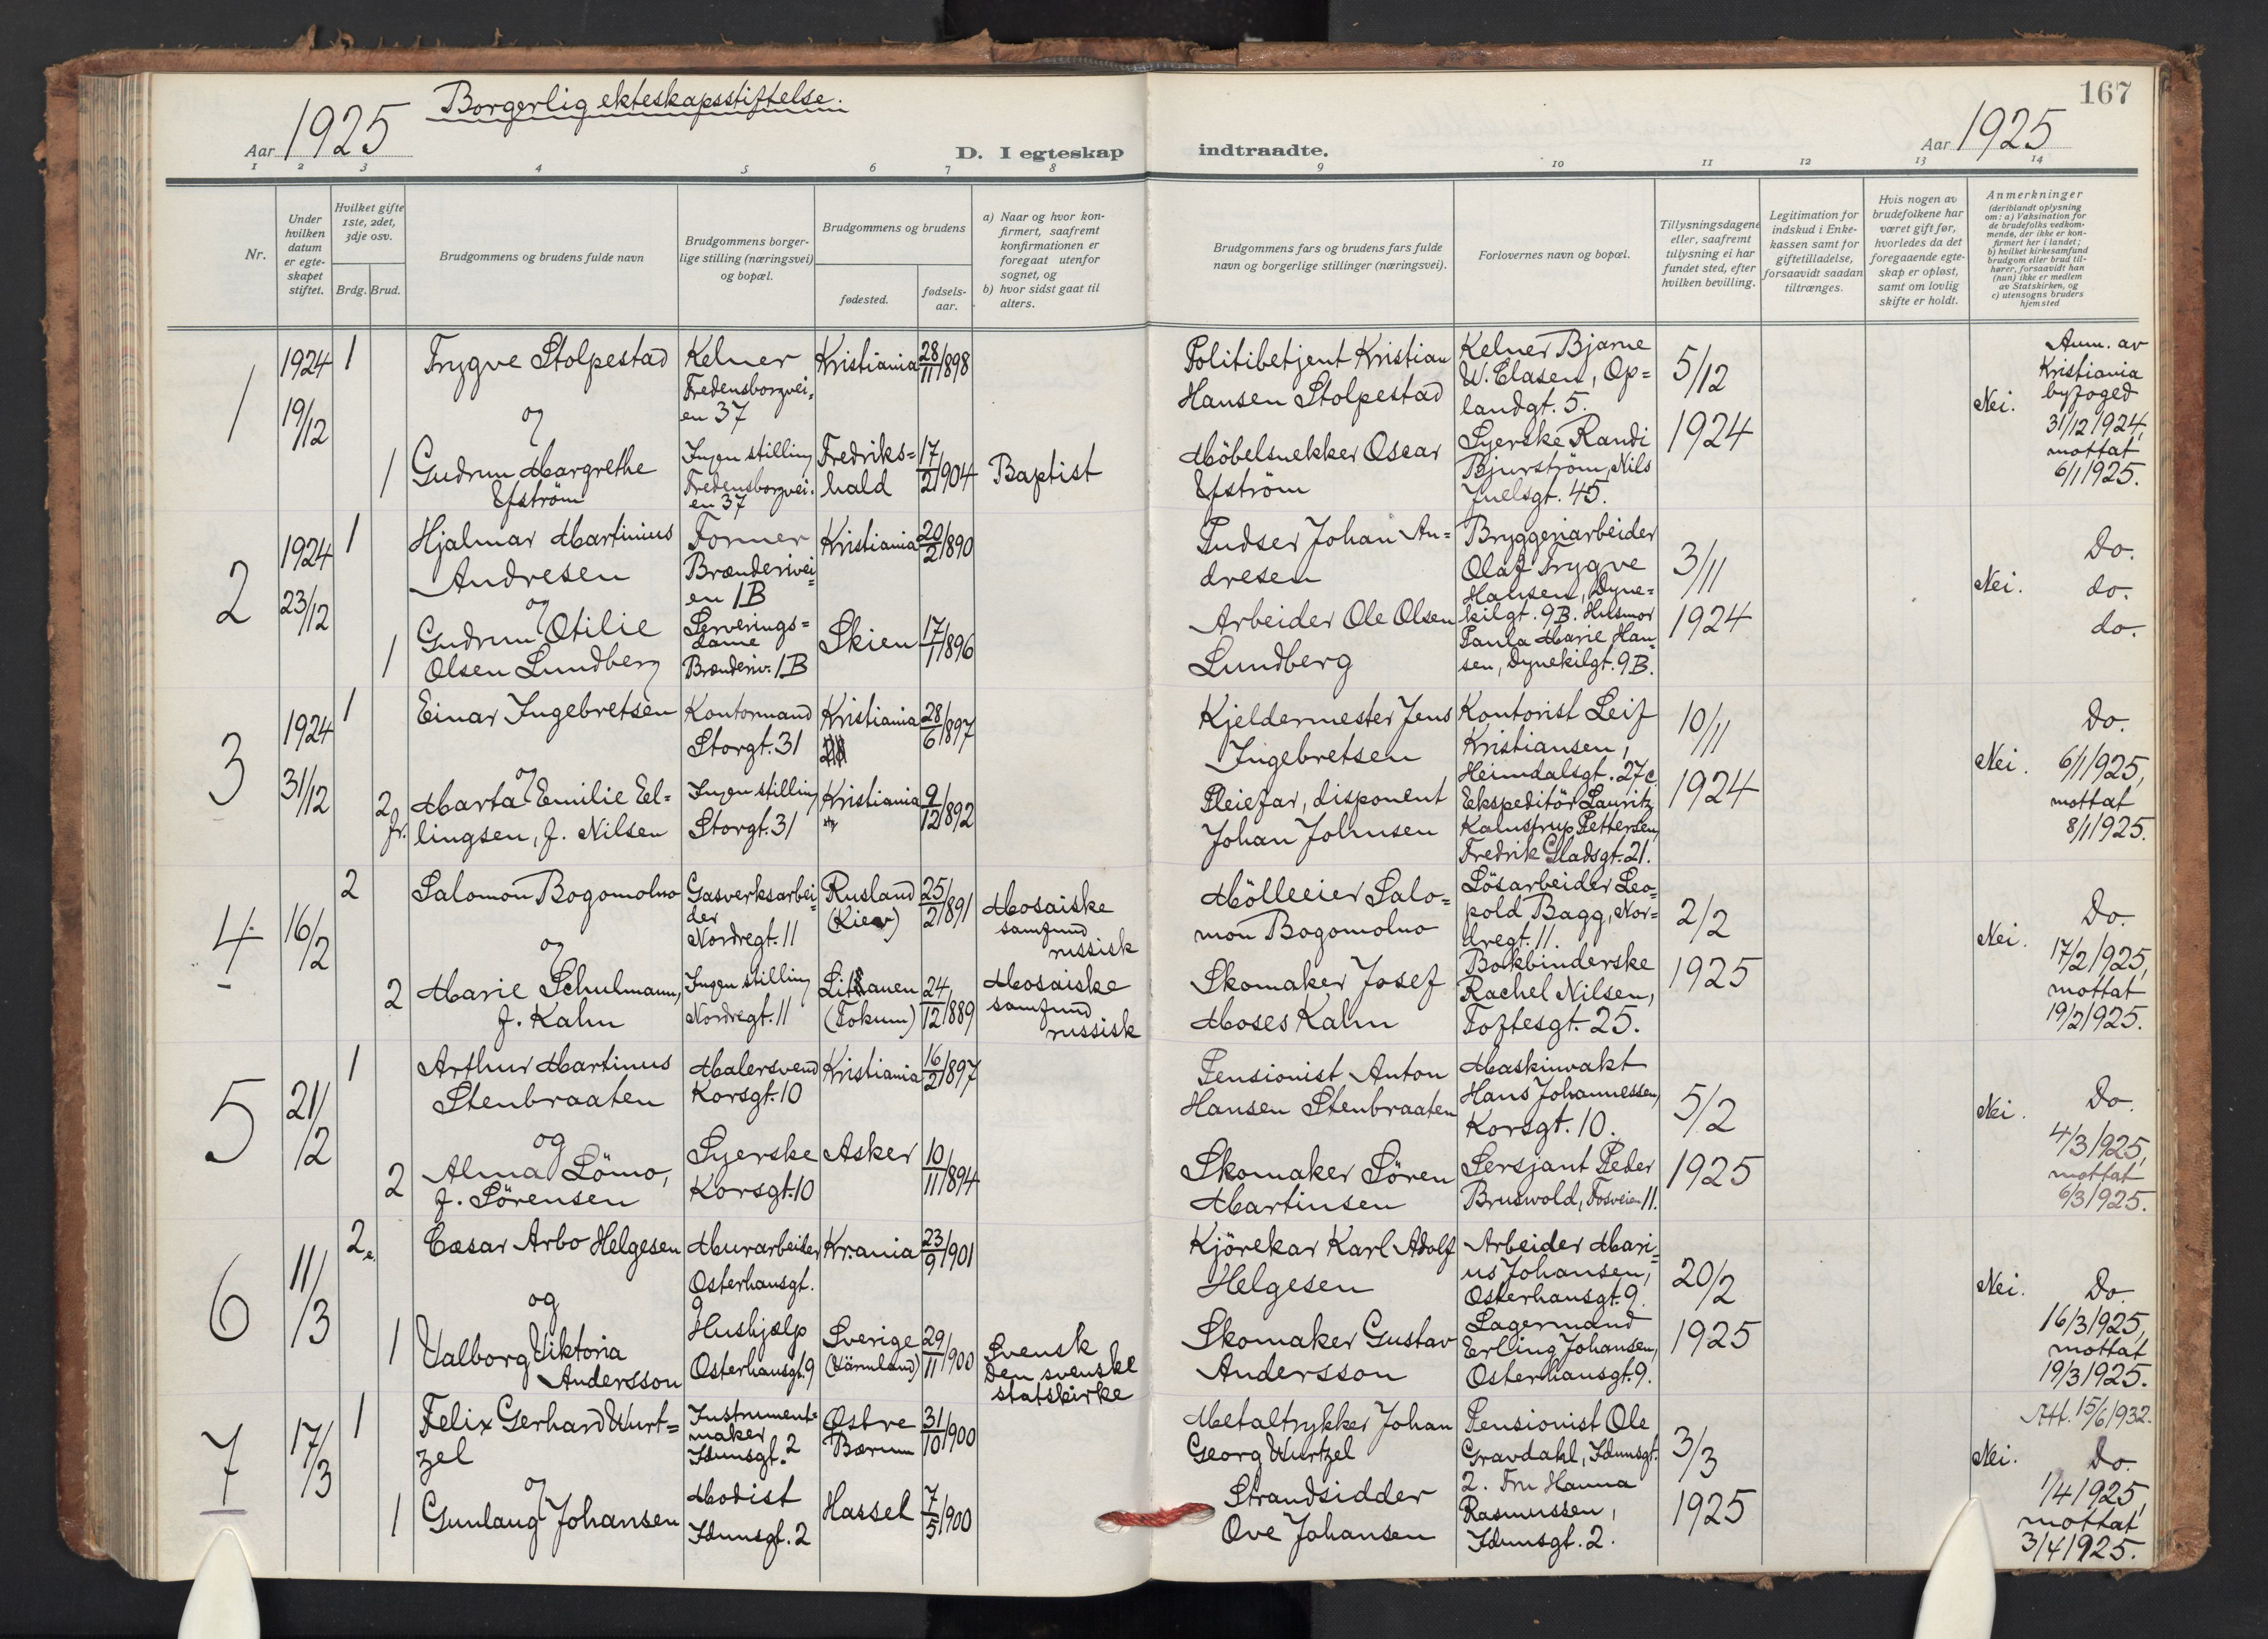 Borgerlig ekteskapsstiftelse.
167
Aar 1925
D. I egteskap
indtraadte.
Aar 1925
1 2 3 4 5 6 7 8 9 10 11 12 13 14
Nr.
Under hvilken datum er egte-skapet stiftet.
Hvilket gifte 1ste, 2det, 3dje osv.
Brdg. Brud.
Brudgommens og brudens fulde navn
Brudgommens borger-lige stilling (næringsvei) og bopæl.
Brudgommens og brudens
fødested.
fødsels-aar.
a) Naar og hvor kon-firmert, saafremt konfirmationen er foregaat utenfor sognet, og
b) hvor sidst gaat til alters.
Brudgommens fars og brudens fars fulde navn og borgerlige stillinger (næringsvei).
Forlovernes navn og bopæl.
Tillysningsdagene eller, saafremt tillysning ei har fundet sted, efter hvilken bevilling.
Legitimation for indskud i Enke-kassen samt for giftetilladelse, forsaavidt saadan tiltrænges.
Hvis nogen av brudefolkene har været gift før, hvorledes da det foregaaende egte-skap er opløst, samt om lovlig skifte er holdt.
Anmerkninger
(deriblandt oplysning om: a) Vaksination for de brudefolks vedkom-mende, der ikke er kon-firmert her i landet; b) hvilket kirkesamfund brudgom eller brud til-hører, forsaavidt han (hun) ikke er medlem av Statskirken, og c) utensogns bruders hjemsted
1
1924
19/12
1
Trygve Stolpestad
og
Kelner
Fredensborgvei=
en 37
Kristiania
28/11 1898
Politibetjent Kristian
Hansen Stolpestad
Kelner Bjarne
W. Clasen, Op=
landgt. 5.
5/12
1924
Nei.
Anm. av
Kristiania
byfoged
31/12 1924,
mottat
6/1 1925.
1
Gudrun Margrethe
Efström
Ingen stilling
Fredensborgvei=
en 37
Fredriks=
hald
17/2 1904
Baptist
Möbelsnekker Oscar
Efström
Syerske Randi
Bjurström, Nils
Juelsgt. 45.
2
1924
23/12
1
Hjalmar Martinius
Andresen
og
Former
Brænderivei=
en 1B
Kristiania
20/2 1890
Pudser Johan An=
dresen
Bryggeriarbeider
Olaf Trygve
Hansen, Dyne=
kilgt. 9B. Husmor
3/11
1924
Nei.
Do.
do.
do.
1
Gudrun Otilie
Olsen Lundberg
Serverings=
dame
Brænderiv. 1B
Skien
17/1 1896
Arbeider Ole Olsen
Lundberg
Paula Marie Han=
sen, Dynekilgt. 9B.
3
1924
31/12
1
Einar Ingebretsen
og
Kontormand
Storgt. 31
Kristiania
28/6 1897
Kjeldermester Jens
Ingebretsen
Kontorist Leif
Kristiansen,
Heimdalsgt. 27c.
10/11
1924
Nei.
Do.
6/1 1925,
mottat
8/1 1925.
2
fr.
Marta Emilie Eel=
lingsen, f. Nilsen
Ingen stilling
Storgt. 31
Kristiania
9/12 1892
Pleiefar, disponent
Johan Johnsen
Ekspeditör Lauritz
Kalnstrup Pettersen,
Fredrik Gladsgt. 21.
4
16/2
2
Salomon Bogomolno
og
Gasverksarbei=
der
Nordregt. 11
Rusland
(Kiew)
25/2 1891
Mosaiske
samfund
russisk
Mölleeier Salo=
mon Bogomolno
Lösarbeider Leo=
pold Bagg, Nor=
dregt. 11.
2/2
1925
Nei.
Do.
17/2 1925,
mottat
19/2 1925.
2
Marie Schulmann,
f. Kahn
Ingen stilling
Nordregt. 11
Litauen
(Tokum)
24/12 1889
Mosaiske
samfund
russisk
Skomaker Josef
Moses Kahn
Bokbinderske
Rachel Nilsen,
Toftesgt. 25.
5
21/2
1
Arthur Martinus
Stenbraaten
og
Malersvend
Korsgt. 10
Kristiania
16/2 1897
Pensionist Anton
Hansen Stenbraaten
Maskinvakt
Hans Johannessen,
Korsgt. 10.
5/2
1925
Nei.
Do.
4/3 1925,
mottat
6/3 1925.
2
Alma Lömo,
f. Sörensen
Syerske
Korsgt. 10
Asker
10/11 1894
Skomaker Sören
Martinsen
Sersjant Peder
Bruswold, Fosveien 11.
6
11/3
2
Cæsar Arbo Helgesen
og
Murarbeider
Osterhausgt.
9
Kr.ania
23/9 1901
Kjörekar Karl Adolf
Helgesen
Arbeider Mari=
us Johansen,
Osterhausgt. 9.
20/2
1925
Nei.
Do.
16/3 1925,
mottat
19/3 1925.
1
Valborg Viktoria
Andersson
Hushjælp
Osterhausgt. 9
Sverige
(Värmland)
29/11 1900
Svensk
Den svenske
statskirke
Skomaker Gustav
Andersson
Lagermand
Erling Johansen,
Osterhausgt. 9.
7
17/3
1
Felix Gerhard Wurt=
zel
og
Instrument=
maker
Idunsgt. 2
Østre
Bærum
31/10 1900
Metaltrykker Johan
Georg Wurtzel
Pensionist Ole
Gravdahl, Idunsgt.
2. Fru Hanna
3/3
1925
Att. 15/6 1932.
Nei.
Do.
1/4 1925,
mottat
3/4 1925.
1
Gunlaug Johansen
Modist
Idunsgt. 2
Hassel
7/5 1900
Strandsidder
Ove Johansen
Rasmussen,
Idunsgt. 2.